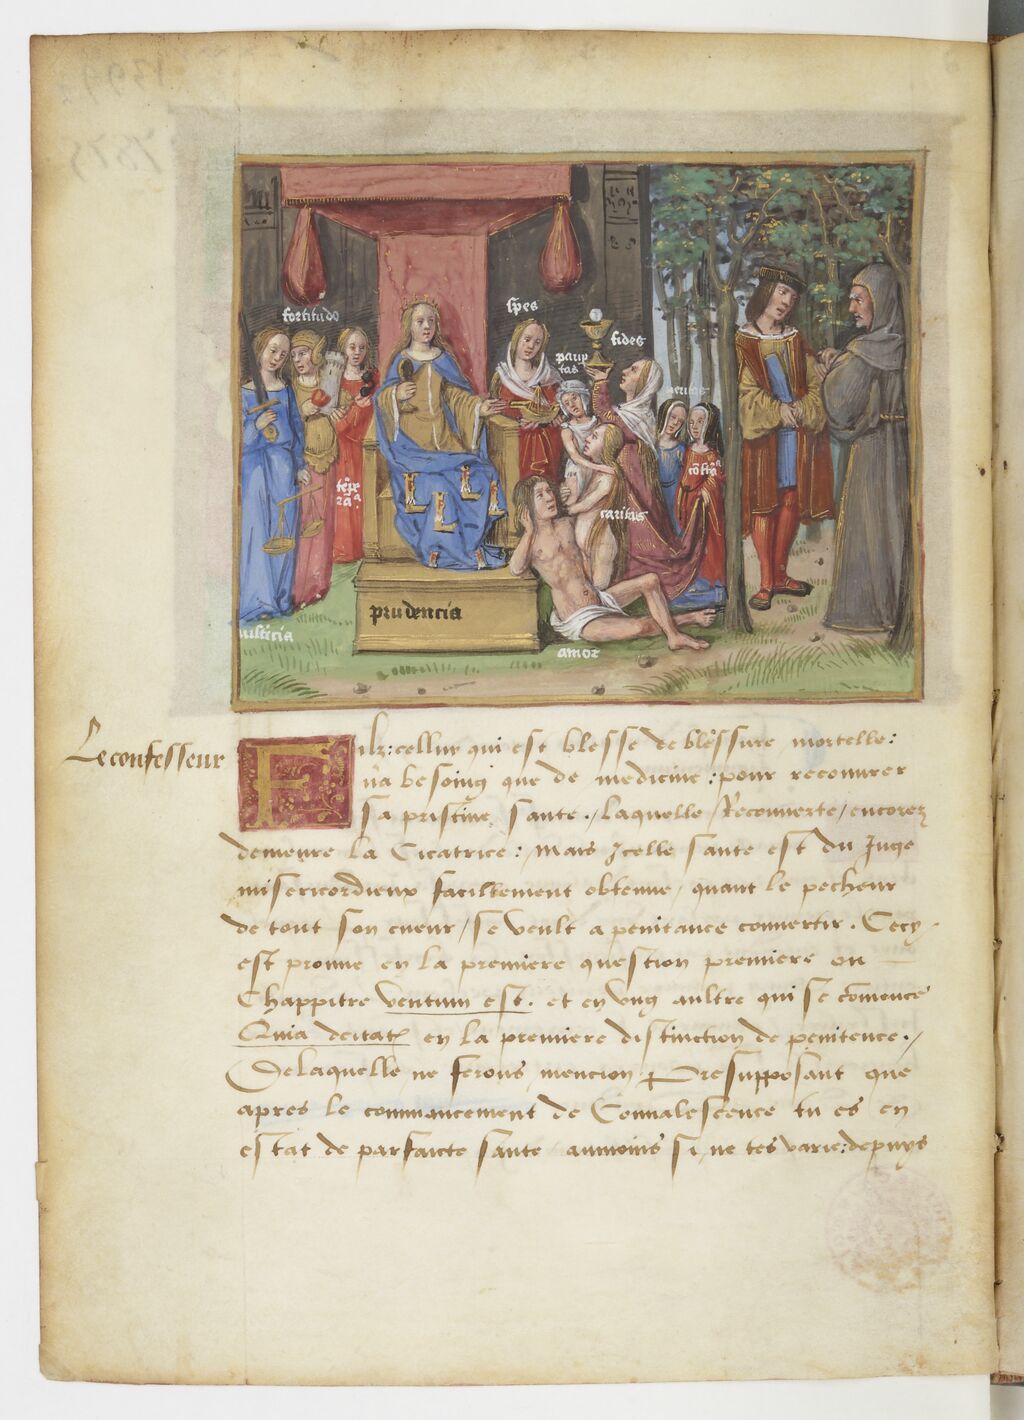 fortitudo
spes
fides
paup
tas
veritas
cõstã
tẽpe
rã
caritas
prudencia
iusticia
amor
Le confesseur
Filz: celluy qui est blesse de blessure mortelle:
na besoing que de medicine: pour recouvrer
sa pristine sante / laquelle Recouverte / encorez
demeure la Cicatrice: Mais Icelle sante est du Juge
misericordieux facillement obtenue / quant le pecheur
de tout son cueur / se veult a penitance convertir. Cecy
est prouve en la premiere question premiere on
Chappitre ventum est. et en ung aultre qui se cõmence
Quia dcitate en la premiere distinction de penitence./
De laquelle ne ferons mencion Presupposant que
apres le commancement de Convalescence tu es en
estat de parfaicte sante aumoins si ne tes varie: depuys